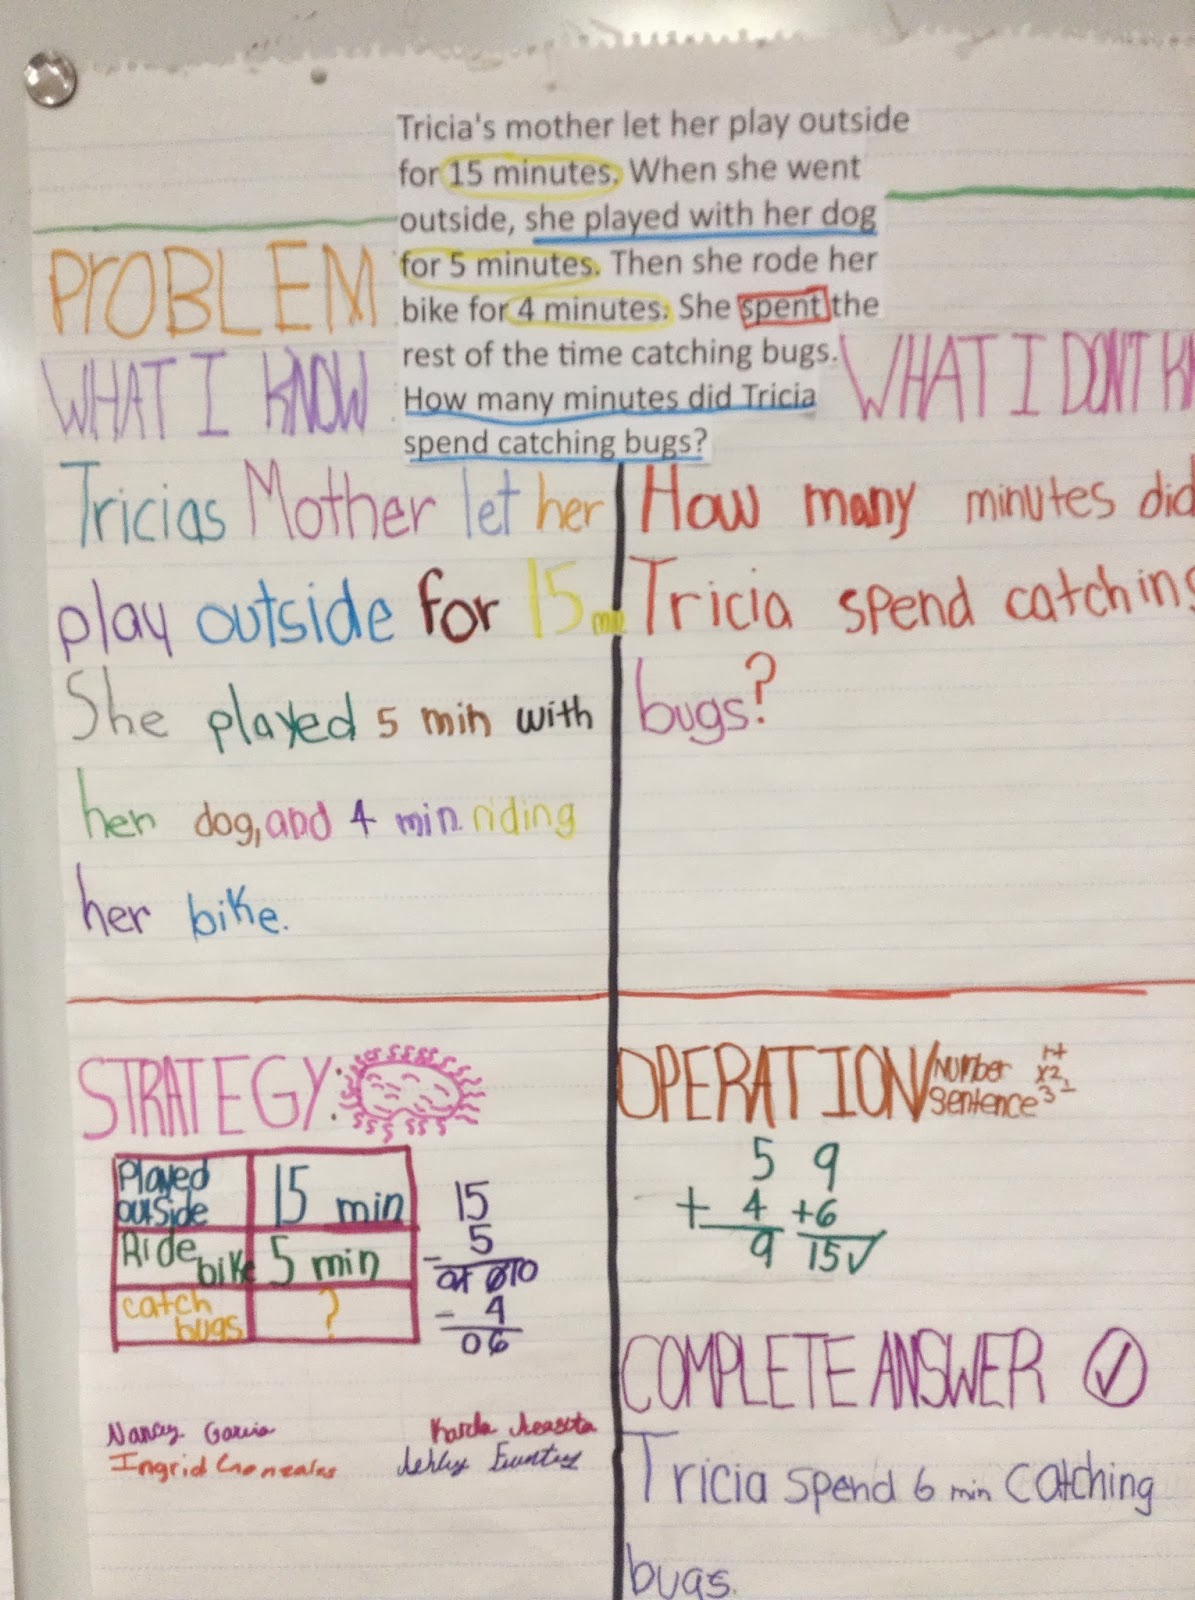 Tricia's mother let her play outside
for 15 minutes. When she went
outside, she played with her dog
for 5 minutes. Then she rode her
bike for 4 minutes. She spent the
rest of the time catching bugs.
How many minutes did Tricia
spend catching bugs?
PROBLEM
WHAT I KNOW
Tricias Mother let her
play outside for 15 min
She played 5 min with
her dog, and 4 min riding
her bike.
WHAT I DON'T K
How many minutes did
Tricia spend catching
bugs?
STRATEGY:
Played outside 15 min
Ride bike 5 min
catch bugs ?
15
- 5
10
- 4
06
Nancy Garcia
Ingrid Gonzales
Karla
Ashley
OPERATION/Number sentence
1+
x2
3-
5 9
+ 4 +6
9 15✓
COMPLETE ANSWER ✓
Tricia spend 6 min catching
bugs.